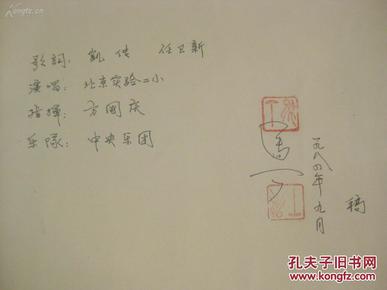 歌词：凯传 任卫新
演唱：北京实验二小
指挥：方国庆
乐队：中央乐团
一九八四年九月
稿
孔夫子旧书网
KONGFZ.COM